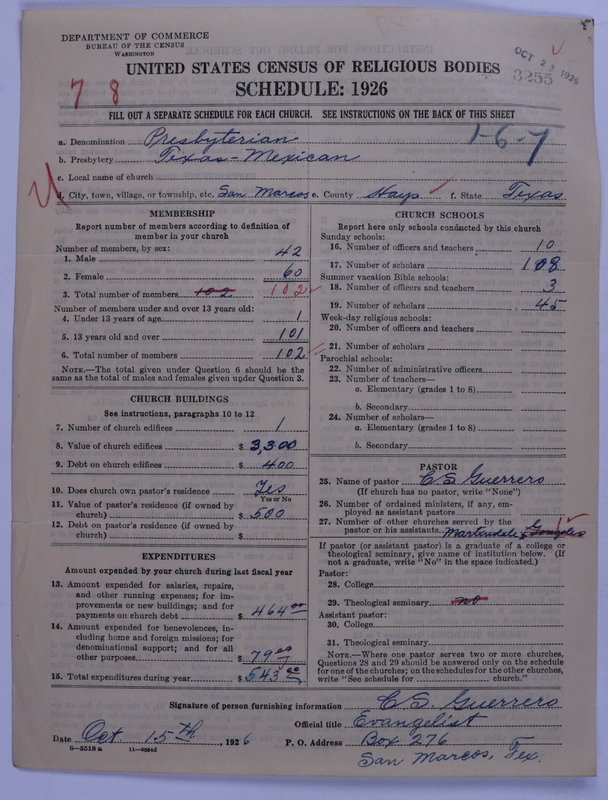 DEPARTMENT OF COMMERCE
BUREAU OF THE CENSUS
WASHINGTON
OCT 23 1926
3255
UNITED STATES CENSUS OF RELIGIOUS BODIES
7 8
SCHEDULE: 1926
FILL OUT A SEPARATE SCHEDULE FOR EACH CHURCH. SEE INSTRUCTIONS ON THE BACK OF THIS SHEET
1-6-7
a. Denomination Presbyterian
b. Presbytery Texas-Mexican
c. Local name of church
d. City, town, village, or township, etc. San Marcos e. County Hays f. State Texas
MEMBERSHIP
Report number of members according to definition of member in your church
Number of members, by sex:
1. Male 42
2. Female 60
3. Total number of members 102 102
Number of members under and over 13 years old:
4. Under 13 years of age 1
5. 13 years old and over 101
6. Total number of members 102
NOTE.—The total given under Question 6 should be the
same as the total of males and females given under Question 3.
CHURCH BUILDINGS
See instructions, paragraphs 10 to 12
7. Number of church edifices 1
8. Value of church edifices $ 3,300
9. Debt on church edifices $ 400
10. Does church own pastor's residence Yes
Yes or No
11. Value of pastor's residence (if owned by
church) $ 500
12. Debt on pastor's residence (if owned by
church) $
EXPENDITURES
Amount expended by your church during last fiscal year
13. Amount expended for salaries, repairs,
and other running expenses; for im-
provements or new buildings; and for
payments on church debt $ 464 00
14. Amount expended for benevolences, in-
cluding home and foreign missions; for
denominational support; and for all
other purposes $ 79 00
15. Total expenditures during year $ 543 00
CHURCH SCHOOLS
Report here only schools conducted by this church
Sunday schools:
16. Number of officers and teachers 10
17. Number of scholars 108
Summer vacation Bible schools:
18. Number of officers and teachers 3
19. Number of scholars 45
Week-day religious schools:
20. Number of officers and teachers
21. Number of scholars
Parochial schools:
22. Number of administrative officers
23. Number of teachers—
a. Elementary (grades 1 to 8)
b. Secondary
24. Number of scholars—
a. Elementary (grades 1 to 8)
b. Secondary
PASTOR
25. Name of pastor C S Guerrero
(If church has no pastor, write "None")
26. Number of ordained ministers, if any, em-
ployed as assistant pastors
27. Number of other churches served by the
pastor or his assistants. Martindale & Gonzales
If pastor (or assistant pastor) is a graduate of a college or
theological seminary, give name of institution below. (If
not a graduate, write "No" in the space indicated.)
Pastor:
28. College
29. Theological seminary no
Assistant pastor:
30. College
31. Theological seminary
NOTE.—Where one pastor serves two or more churches,
Questions 28 and 29 should be answered only on the schedule
for one of the churches; on the schedules for the other churches,
write "See schedule for church."
Signature of person furnishing information C. S. Guerrero
Official title Evangelist
Date Oct. 15th, 1926 P. O. Address Box 276
San Marcos, Tex.
8-5518 a